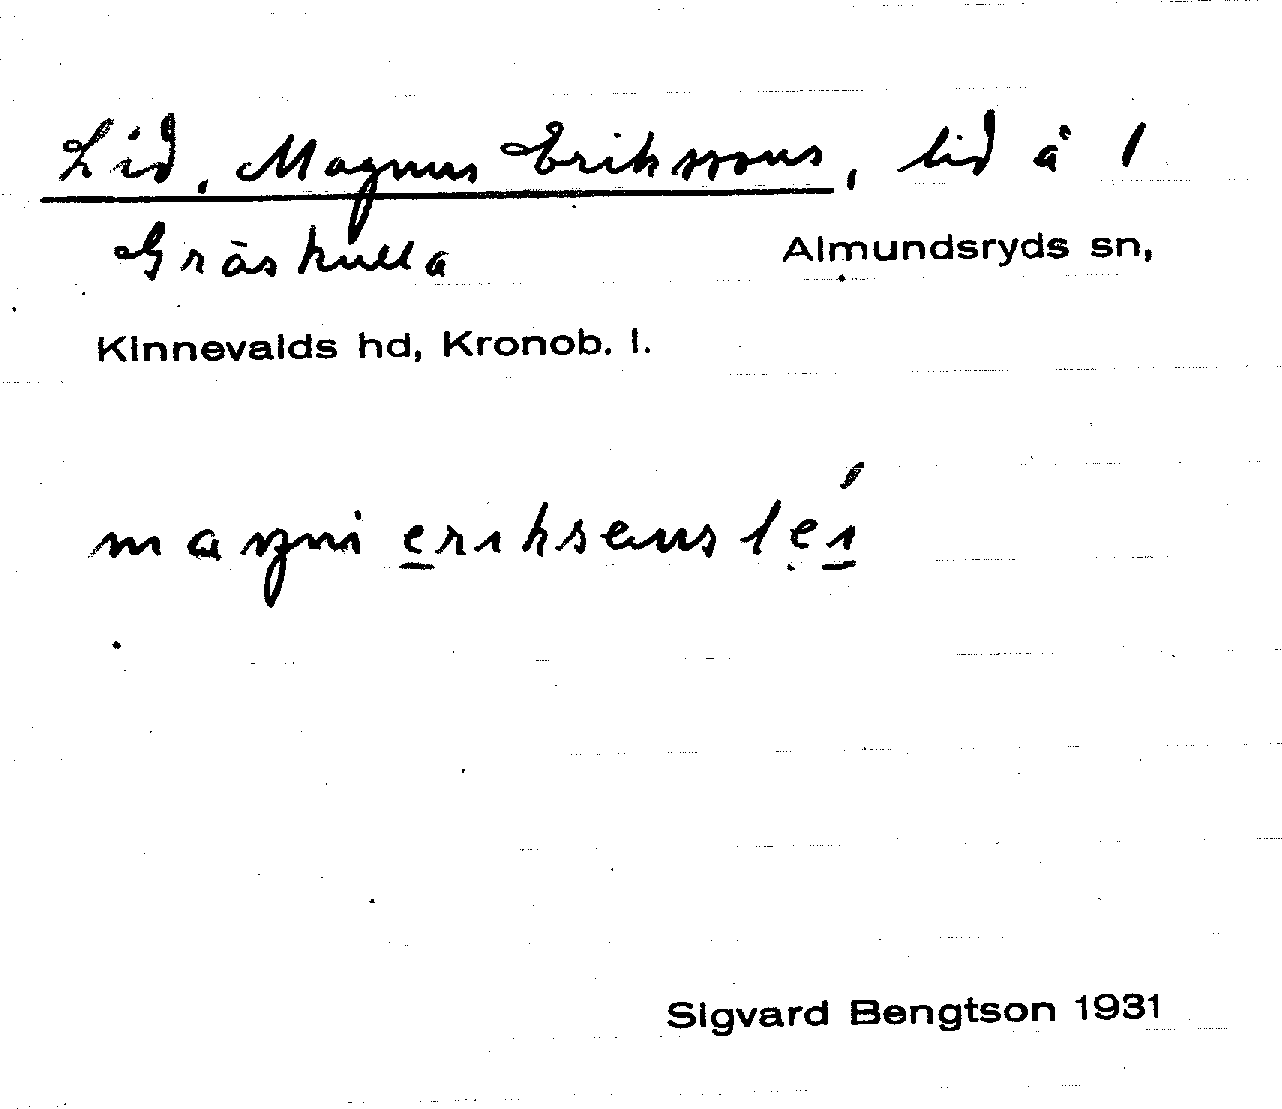 Lid, Magnus Erikssons, lid å 1
Gräskulla Almundsryds sn,
Kinnevalds hd, Kronob. l.
Sigvard Bengtson 1931